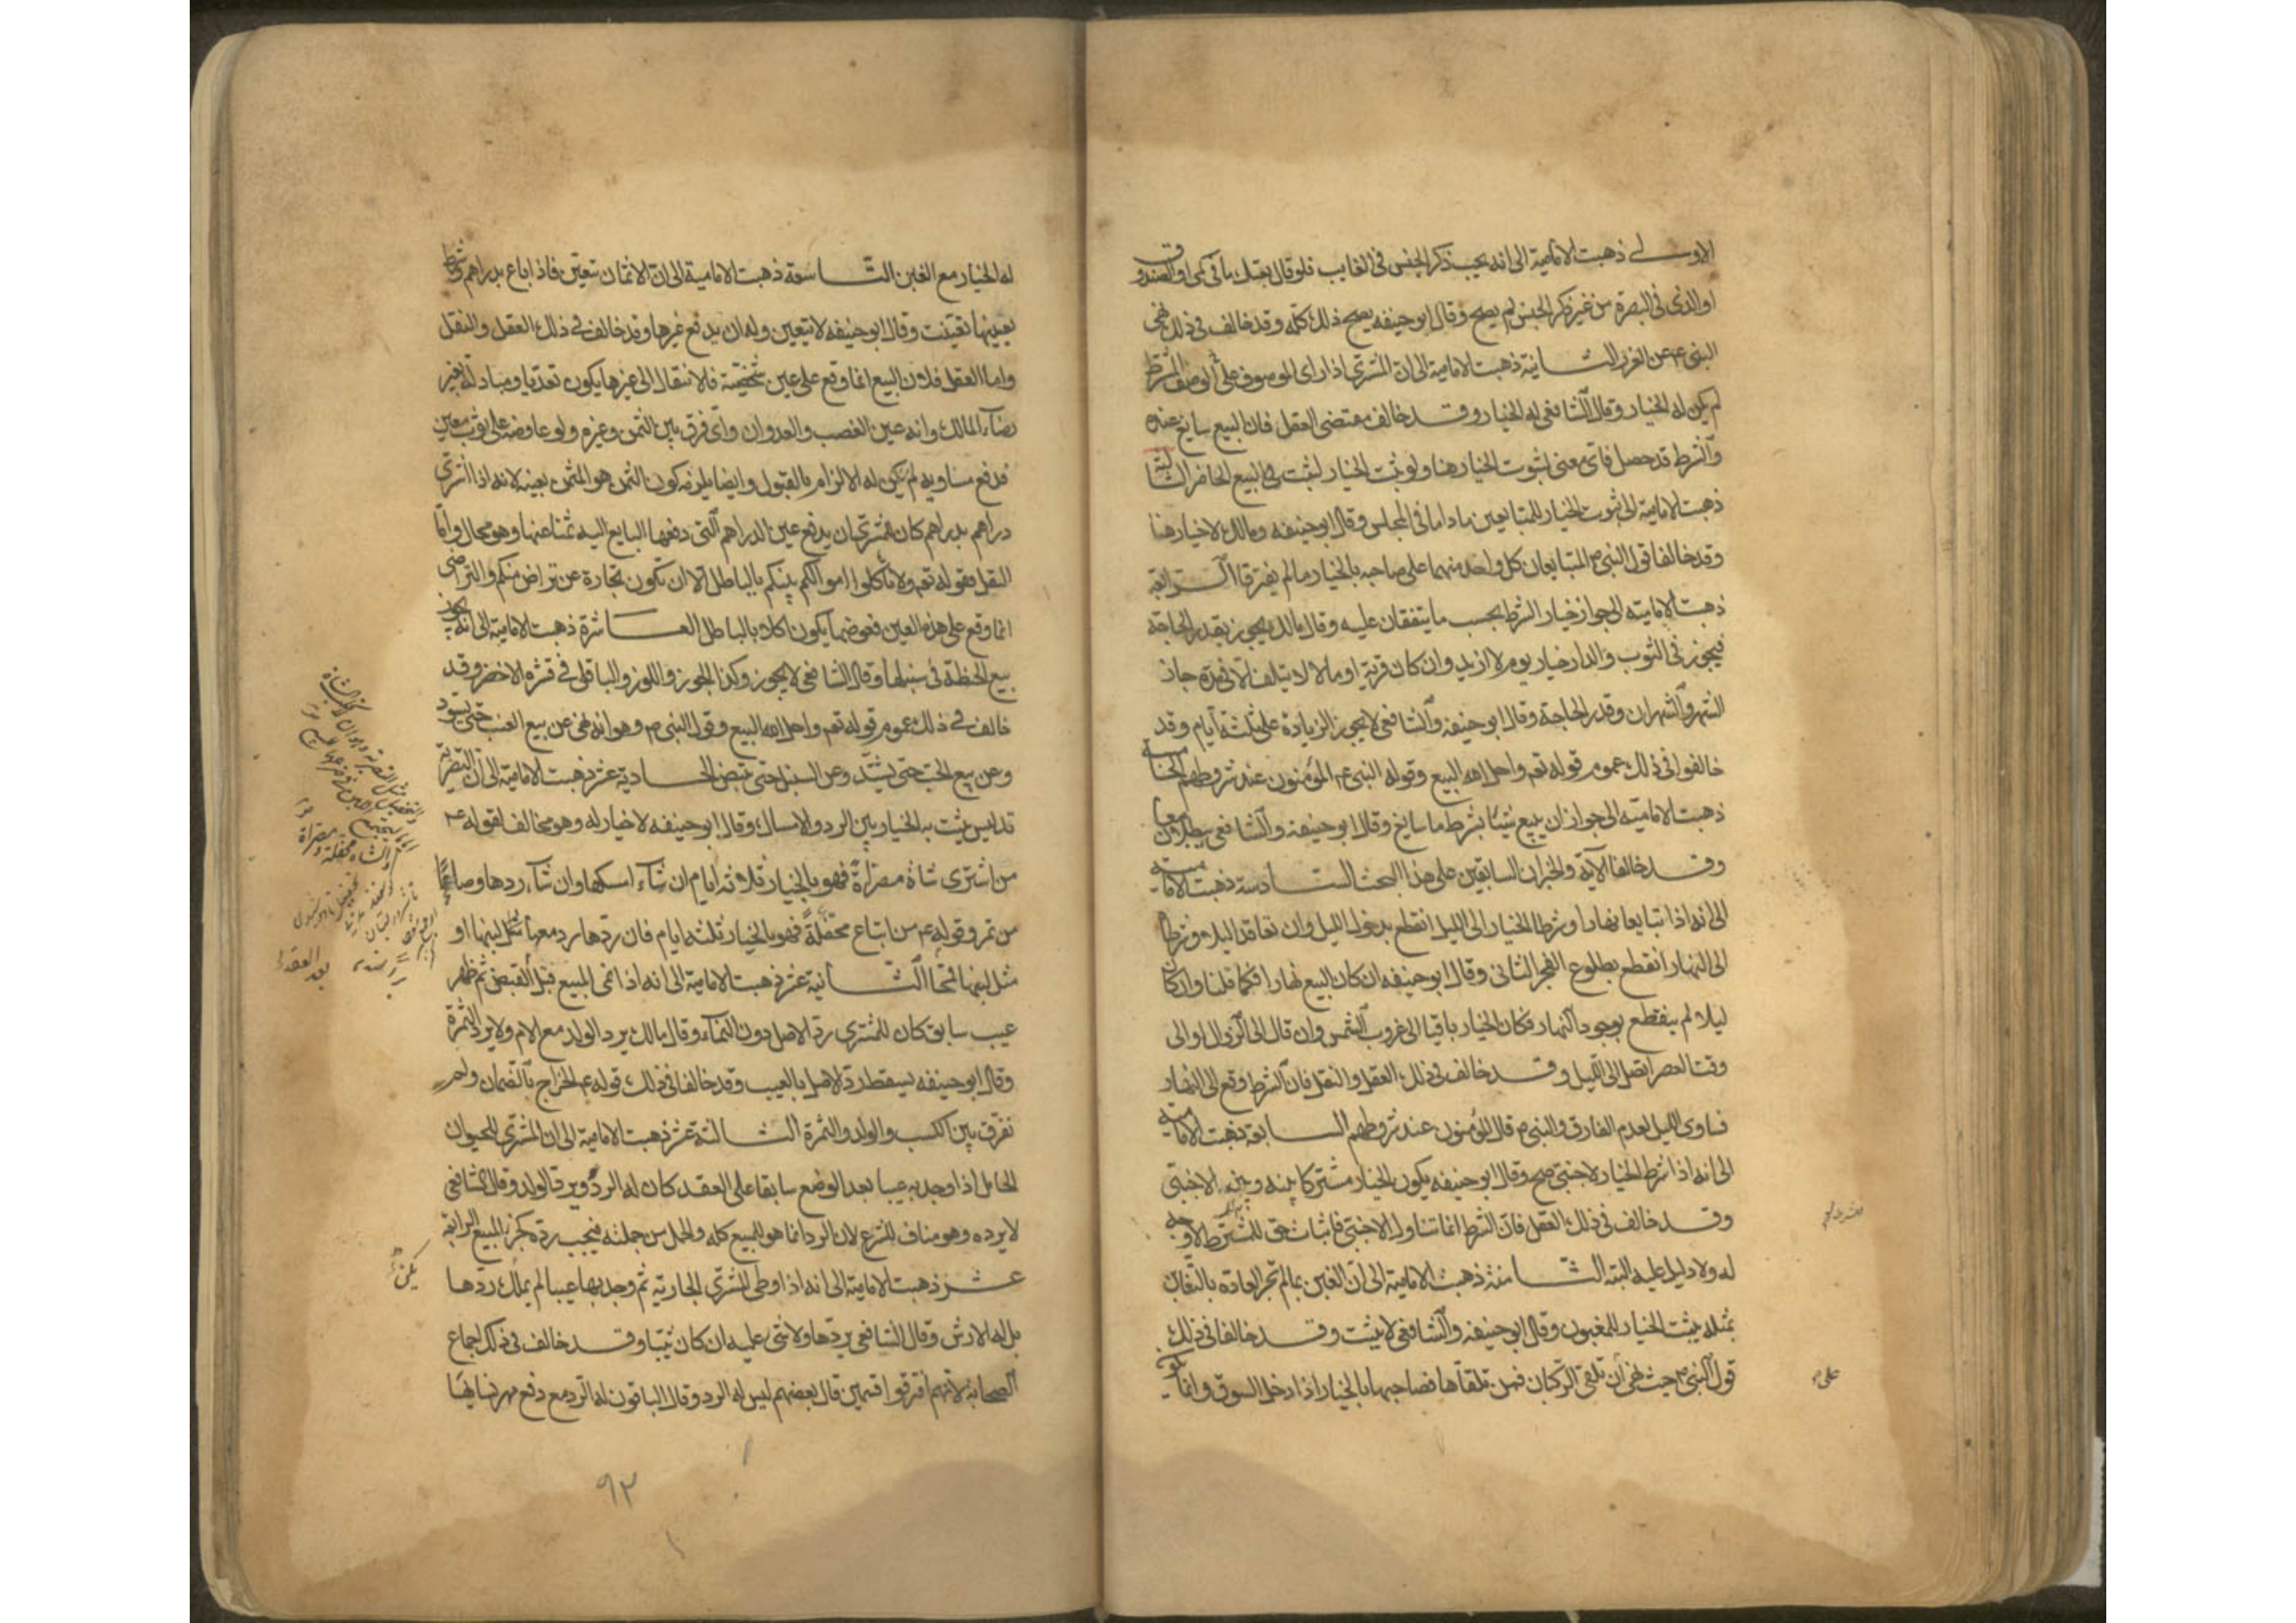 الاولى ذهبت الامامية الى انه يجب ذكر الجنس في الغايب فلو قال بعتك ما في كمي او الصندوق
او الذي في البصرة من غير ذكر الجنس لم يصح وقال ابو حنيفه يصح ذلك كله وقد خالف في ذلك نهي
النبي ص عن الغرر الثانية ذهبت الامامية الى ان المشتري اذا راى الموصوف على الوصف المشترط
لم يكن له الخيار وقال الشافعي له الخيار وقد خالف مقتضى العقل فان البيع سايغ عنده
والشرط قد حصل فاي معنى لثبوت الخيار هنا ولو ثبت الخيار لثبت في البيع الحاضر الثالثة
ذهبت الامامية الى ثبوت الخيار للمتبايعين ماداما في المجلس وقال ابو حنيفه ومالك لا خيار هنا
وقد خالفا قول النبي ص المتبايعان كل واحد منهما على صاحبه بالخيار ما لم يفترقا الرابعة
ذهبت الامامية الى جواز خيار الشرط بحسب ما يتفقان عليه وقال مالك يجوز بقدر الحاجة
فيجوز في الثوب والدار خيار يوم لا ازيد وان كان قرية او مالا لا يتلف الا في مدة جاز
الشهر والشهران وقدر الحاجة وقال ابو حنيفه والشافعي لا يجوز الزيادة على ثلثة ايام وقد
خالفوا في ذلك عموم قوله تعم واحل الله البيع وقوله النبي ص المؤمنون عند شروطهم الخامسة
ذهبت الامامية الى جواز ان يبيع شيئا بشرط ما سايغ وقال ابو حنيفه والشافعي يبطلان معا
وقد خالفا الآية والخبران السابقين على هذا البحث السادسة ذهبت الامامية
الى انه اذا تبايعا نهارا وشرطا الخيار الى الليل انقطع بدخول الليل وان تعاقدا ليلا وشرطا
الى النهار انقطع بطلوع الفجر الثاني وقال ابو حنيفه ان كان البيع نهارا فكما قلنا وان كان
ليلا لم ينقطع بوجود النهار فكان الخيار باقيا الى غروب الشمس وان قال الى الزوال او الى
وقت العصر اتصل الى الليل وقد خالف في ذلك العقل والنقل فان الشرط وقع الى النهار
فساوى الليل لعدم الفارق والنبي ص قال المؤمنون عند شروطهم السابعة ذهبت الامامية
الى انه اذا شرط الخيار لاجنبي صح وقال ابو حنيفه يكون الخيار مشتركا بينه وبين الاجنبي
وقد خالف في ذلك العقل فان الشرط انما تناول الاجنبي فاثبات حق للمشترط لا وجه
له ولا دليل عليه البته الثامنة ذهبت الامامية الى ان الغبن بما لم تجر العادة بالتغابن
بمثله يثبت الخيار للمغبون وقال ابو حنيفه والشافعي لا يثبت وقد خالفا في ذلك
قول النبي ص حيث نهى ان تلقى الركبان فمن تلقاها فصاحبها بالخيار اذا دخل السوق وانما يكون
له الخيار مع الغبن التاسعة ذهبت الامامية الى ان الاثمان تتعين فاذا باع بدراهم وشرط
بعينها تعينت وقال ابو حنيفه لا يتعين وله ان يدفع غيرها وقد خالف في ذلك العقل والنقل
واما العقل فلان البيع انما وقع على عين شخصية فلا انتقال الى غيرها يكون تعديا ومبادلة بغير
رضاء المالك وانه عين الغصب والعدوان واي فرق بين الثمن وغيره ولو عاوضه على ثوب معين
فدفع مساويه لم يكن له الالزام بالقبول وايضا يلزمه كون الثمن هو المثمن بعينه لانه اذا اشترى
دراهم بدراهم كان للمشتري ان يدفع عين الدراهم التي دفعها البايع اليه ثمنا عنها وهو محال واما
النقل فقوله تعم ولا تأكلوا اموالكم بينكم بالباطل الا ان تكون تجارة عن تراض منكم والتراضي
انما وقع على هذه العين فعوضها يكون اكلا بالباطل العاشرة ذهبت الامامية الى انه يجوز
بيع الحنطة في سنبلها وقال الشافعي لا يجوز وكذا الجوز واللوز والباقلى في قشره الاخضر وقد
خالف في ذلك عموم قوله تعم واحل الله البيع وقول النبي ص وهو انه نهى عن بيع العنب حتى يسود
وعن بيع الحب حتى يشتد وعن السنبل حتى تبيض الحادية عشر ذهبت الامامية الى ان التصرية
تدليس يثبت به الخيار بين الرد والامساك وقال ابو حنيفه لا خيار له وهو مخالف لقوله ص
من اشترى شاة مصراة فهو بالخيار ثلاثه ايام ان شاء امسكها وان شاء ردها وصاعا
من تمر وقوله ص من ابتاع محفلة فهو بالخيار ثلثه ايام فان ردها رد معها مثل لبنها او
مثل لبنها قمحا الثانية عشر ذهبت الامامية الى انه اذا نمى المبيع قبل القبض ثم ظهر
عيب سابق كان للمشتري رد الاصل دون النماء وقال مالك يرد الولد مع الام ولا يرد الثمرة
وقال ابو حنيفه يسقط رد الاصل بالعيب وقد خالفا في ذلك قوله ص الخراج بالضمان ولم
نفرق بين الكسب والولد والثمرة الثالثة عشر ذهبت الامامية الى ان المشتري للحيوان
الحامل اذا وجد به عيبا بعد الوضع سابقا على العقد كان له الرد ويرد الولد وقال الشافعي
لا يرده وهو مناف للشرع لان الرد انما هو للمبيع كله والحمل من جملته فيجب رده كجزء المبيع الرابعة
عشر ذهبت الامامية الى انه اذا وطى المشتري الجارية ثم وجد بها عيبا لم يملك ردها
بل له الارش وقال الشافعي يردها ولا شئ عليه ان كان ثيبا وقد خالف في ذلك اجماع
الصحابة لانهم افترقوا قسمين قال بعضهم ليس له الرد وقال الباقون له الرد مع دفع مهر نسائها
يكن
٩٢